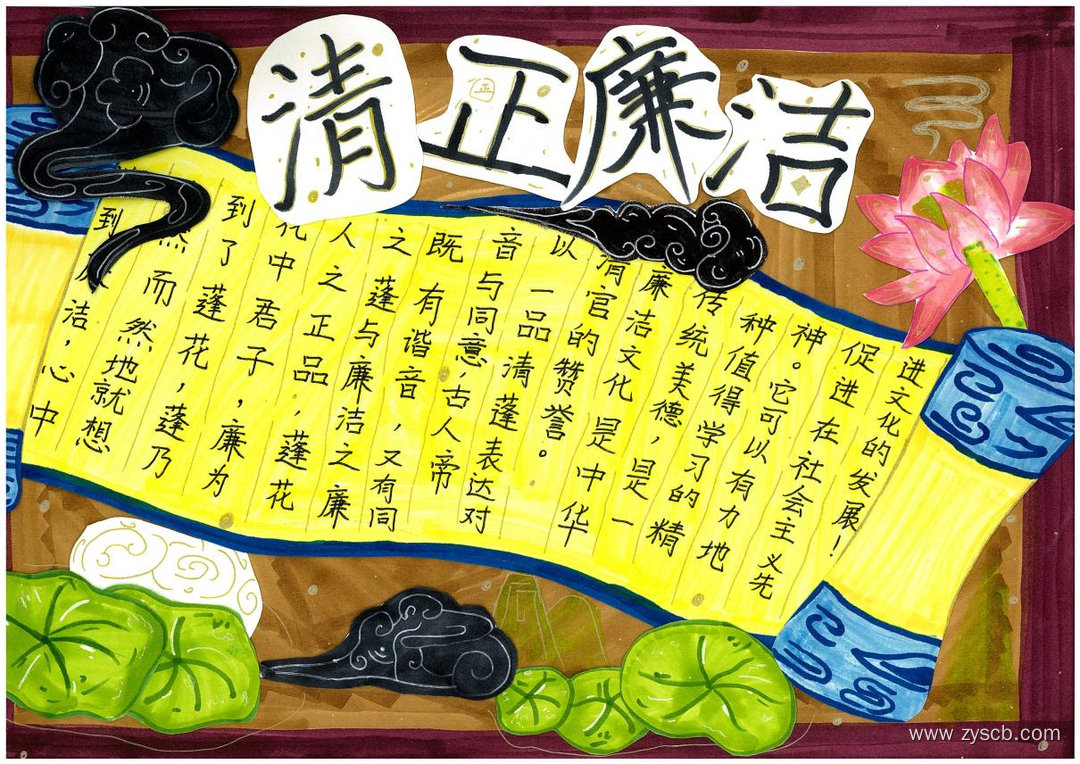 清正廉洁
正
到洁,心中
然而然地就想
到了蓬花,蓬乃
化中君子,廉为
人之正品,蓬花
之蓬与廉洁之廉
既有谐音,又有同
音与同意,古人帝
以一品清蓬表达对
有官的赞誉。
廉洁文化是中华
传统美德,是一
种值得学习的精
神。它可以有力地
促进在社会主义先
进文化的发展!
www.zyscb.com